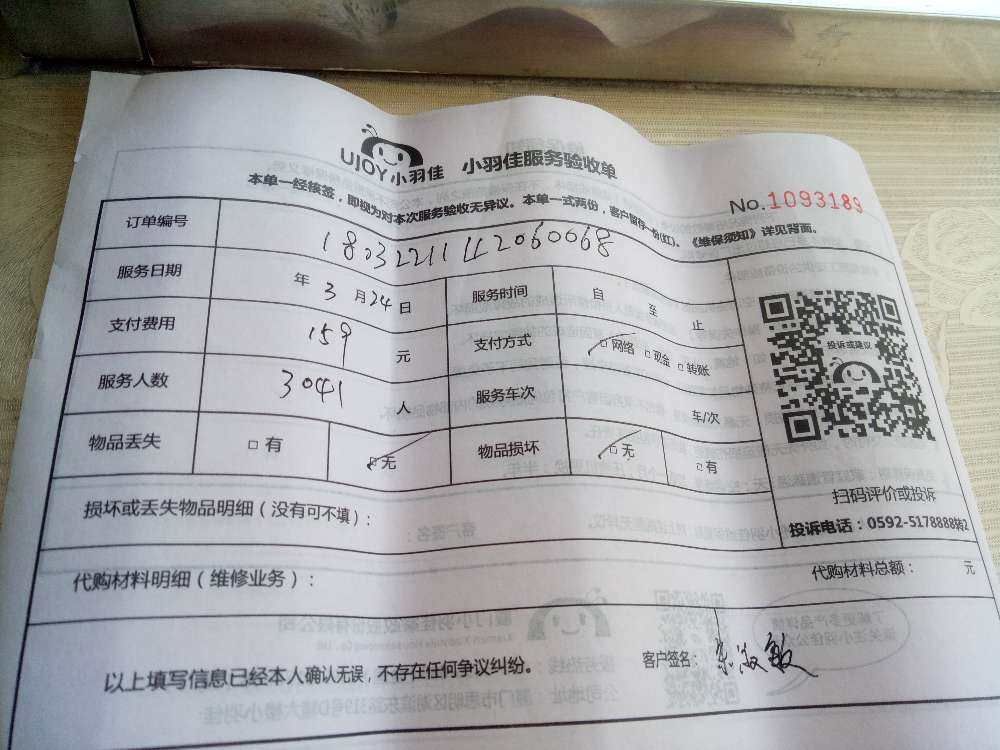 UJOY小羽佳 小羽佳服务验收单
本单一经核签，即视为对本次服务验收无异议。本单一式两份，客户留存一份(红)。《维保须知》详见背面。
No.1093189
订单编号 1803221112060068
服务日期 年 3 月 24 日 服务时间 自 至 止
支付费用 159 元 支付方式 □网络 □现金 □转账
服务人数 3041 人 服务车次 车/次
物品丢失 □有 □无 物品损坏 □无 □有
投诉或建议
扫码评价或投诉
投诉电话：0592-5178888转2
损坏或丢失物品明细（没有可不填）：
代购材料明细（维修业务）： 代购材料总额： 元
以上填写信息已经本人确认无误，不存在任何争议纠纷。 客户签名：